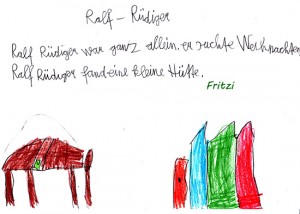 Ralf - Rüdiger
Ralf Rüdiger war ganz allein. er suchte Weihnachten
Ralf Rüdiger fand eine kleine Hütte.
Fritzi